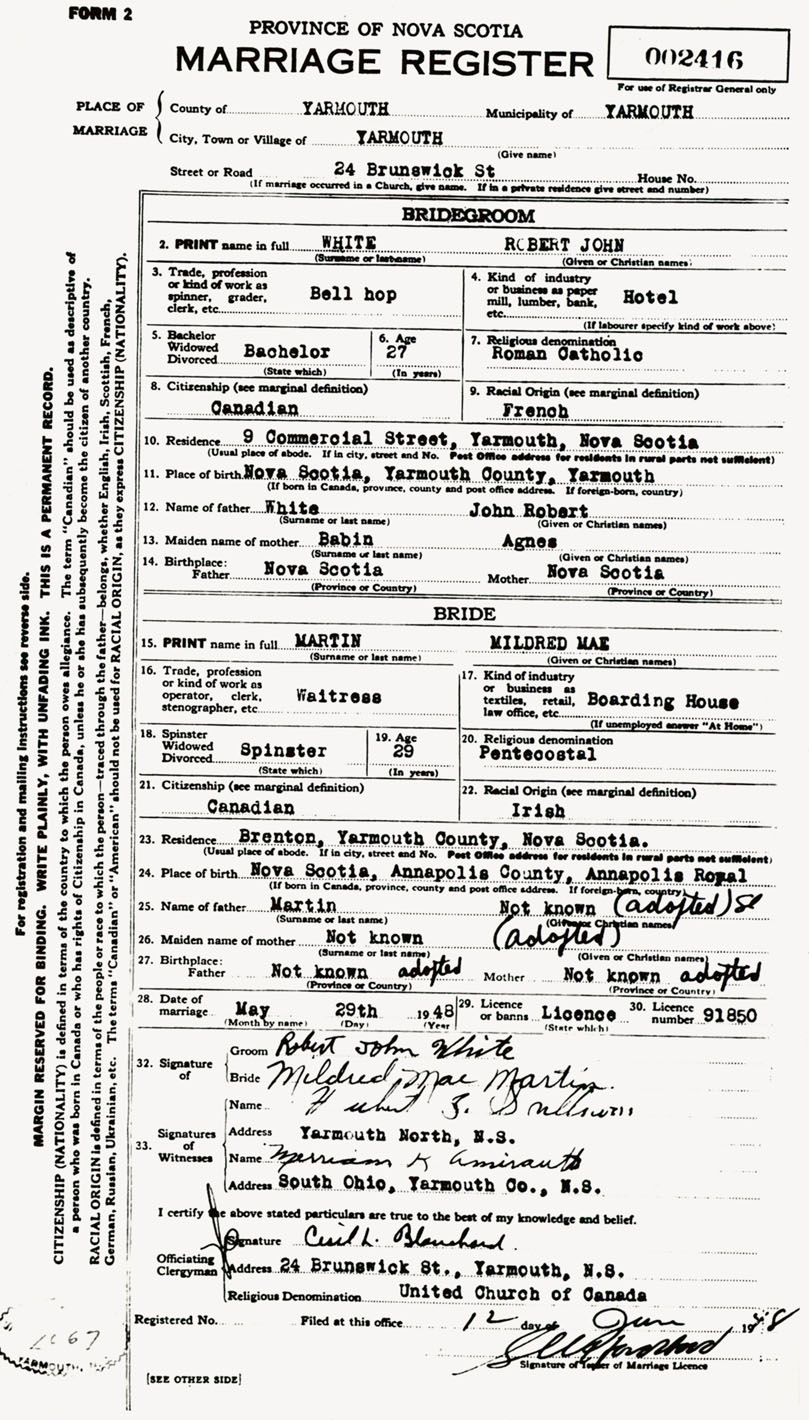 FORM 2
PROVINCE OF NOVA SCOTIA
MARRIAGE REGISTER
002416
For use of Registrar General only
PLACE OF MARRIAGE
County of YARMOUTH Municipality of YARMOUTH
City, Town or Village of YARMOUTH
(Give name)
Street or Road 24 Brunswick St House No.
(If marriage occurred in a Church, give name. If in a private residence give street and number)
BRIDEGROOM
2. PRINT name in full WHITE ROBERT JOHN
(Surname or last name) (Given or Christian names)
3. Trade, profession or kind of work as spinner, grader, clerk, etc. Bell hop
4. Kind of industry or business as paper mill, lumber, bank, etc. Hotel
(If labourer specify kind of work above)
5. Bachelor Widowed Divorced Bachelor
(State which)
6. Age 27
(In years)
7. Religious denomination
Roman Catholic
8. Citizenship (see marginal definition)
Canadian
9. Racial Origin (see marginal definition)
French
10. Residence 9 Commercial Street, Yarmouth, Nova Scotia
(Usual place of abode. If in city, street and No. Post Office address for residents in rural parts not sufficient)
11. Place of birth Nova Scotia, Yarmouth County, Yarmouth
(If born in Canada, province, county and post office address. If foreign-born, country)
12. Name of father White John Robert
(Surname or last name) (Given or Christian names)
13. Maiden name of mother Babin Agnes
(Surname or last name) (Given or Christian names)
14. Birthplace: Father Nova Scotia Mother Nova Scotia
(Province or Country) (Province or Country)
BRIDE
15. PRINT name in full MARTIN MILDRED MAE
(Surname or last name) (Given or Christian names)
16. Trade, profession or kind of work as operator, clerk, stenographer, etc. Waitress
17. Kind of industry or business as textiles, retail, law office, etc. Boarding House
(If unemployed answer "At Home")
18. Spinster Widowed Divorced Spinster
(State which)
19. Age 29
(In years)
20. Religious denomination
Pentecostal
21. Citizenship (see marginal definition)
Canadian
22. Racial Origin (see marginal definition)
Irish
23. Residence Brenton, Yarmouth County, Nova Scotia.
(Usual place of abode. If in city, street and No. Post Office address for residents in rural parts not sufficient)
24. Place of birth Nova Scotia, Annapolis County, Annapolis Royal
(If born in Canada, province, county and post office address. If foreign-born, country)
25. Name of father Martin Not known (adopted)
(Surname or last name) (Given or Christian names)
26. Maiden name of mother Not known (adopted)
(Surname or last name) (Given or Christian names)
27. Birthplace: Father Not known adopted Mother Not known adopted
(Province or Country) (Province or Country)
28. Date of marriage May 29th 1948
(Month by name) (Day) (Year)
29. Licence or banns Licence
(State which)
30. Licence number 91850
32. Signature of
Groom Robert John White
Bride Mildred Mae Martin
33. Signatures of Witnesses
Name
Address Yarmouth North, N.S.
Name K
Address South Ohio, Yarmouth Co., N.S.
I certify the above stated particulars are true to the best of my knowledge and belief.
Officiating Clergyman
Signature Cecil L. Blanchard
Address 24 Brunswick St., Yarmouth, N.S.
Religious Denomination United Church of Canada
Registered No. Filed at this office 12 day of June 1948
Signature of Issuer of Marriage Licence
[SEE OTHER SIDE]
For registration and mailing instructions see reverse side.
MARGIN RESERVED FOR BINDING. WRITE PLAINLY, WITH UNFADING INK. THIS IS A PERMANENT RECORD.
CITIZENSHIP (NATIONALITY) is defined in terms of the country to which the person owes allegiance. The term "Canadian" should be used as descriptive of
a person who was born in Canada or who has rights of Citizenship in Canada, unless he or she has subsequently become the citizen of another country.
RACIAL ORIGIN is defined in terms of the people or race to which the person—traced through the father—belongs, whether English, Irish, Scottish, French,
German, Russian, Ukrainian, etc. The terms "Canadian" or "American" should not be used for RACIAL ORIGIN, as they express CITIZENSHIP (NATIONALITY).
YARMOUTH,